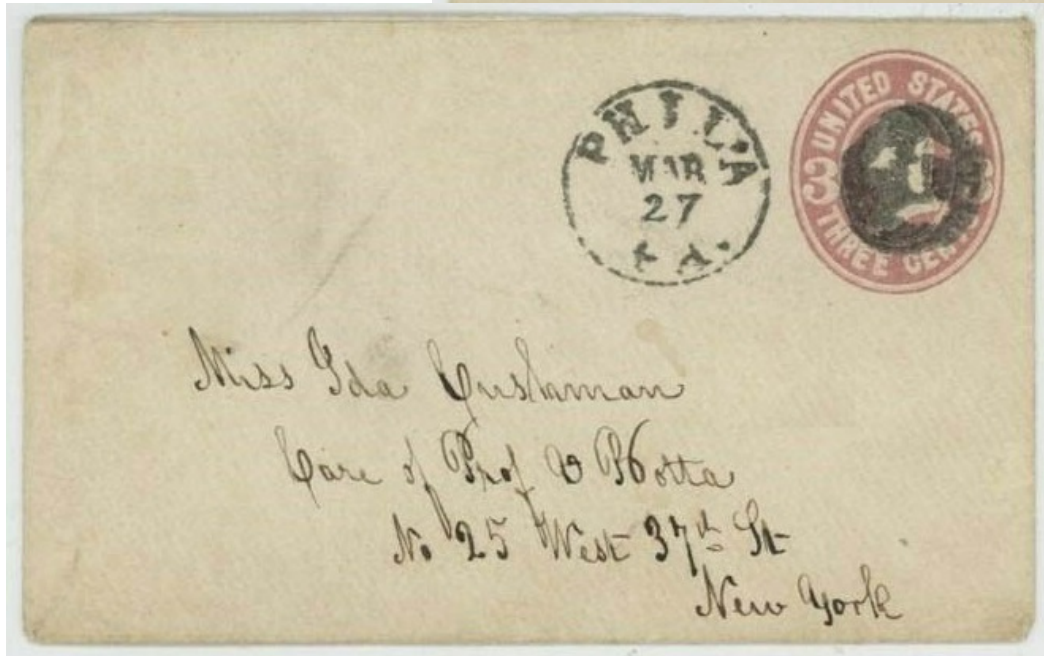 PHIL'A
MAR
27
PA.
UNITED STATES
3
THREE CENTS
Miss Ida Cushman
Care of Prof V Botta
No 25 West 37th St
New York